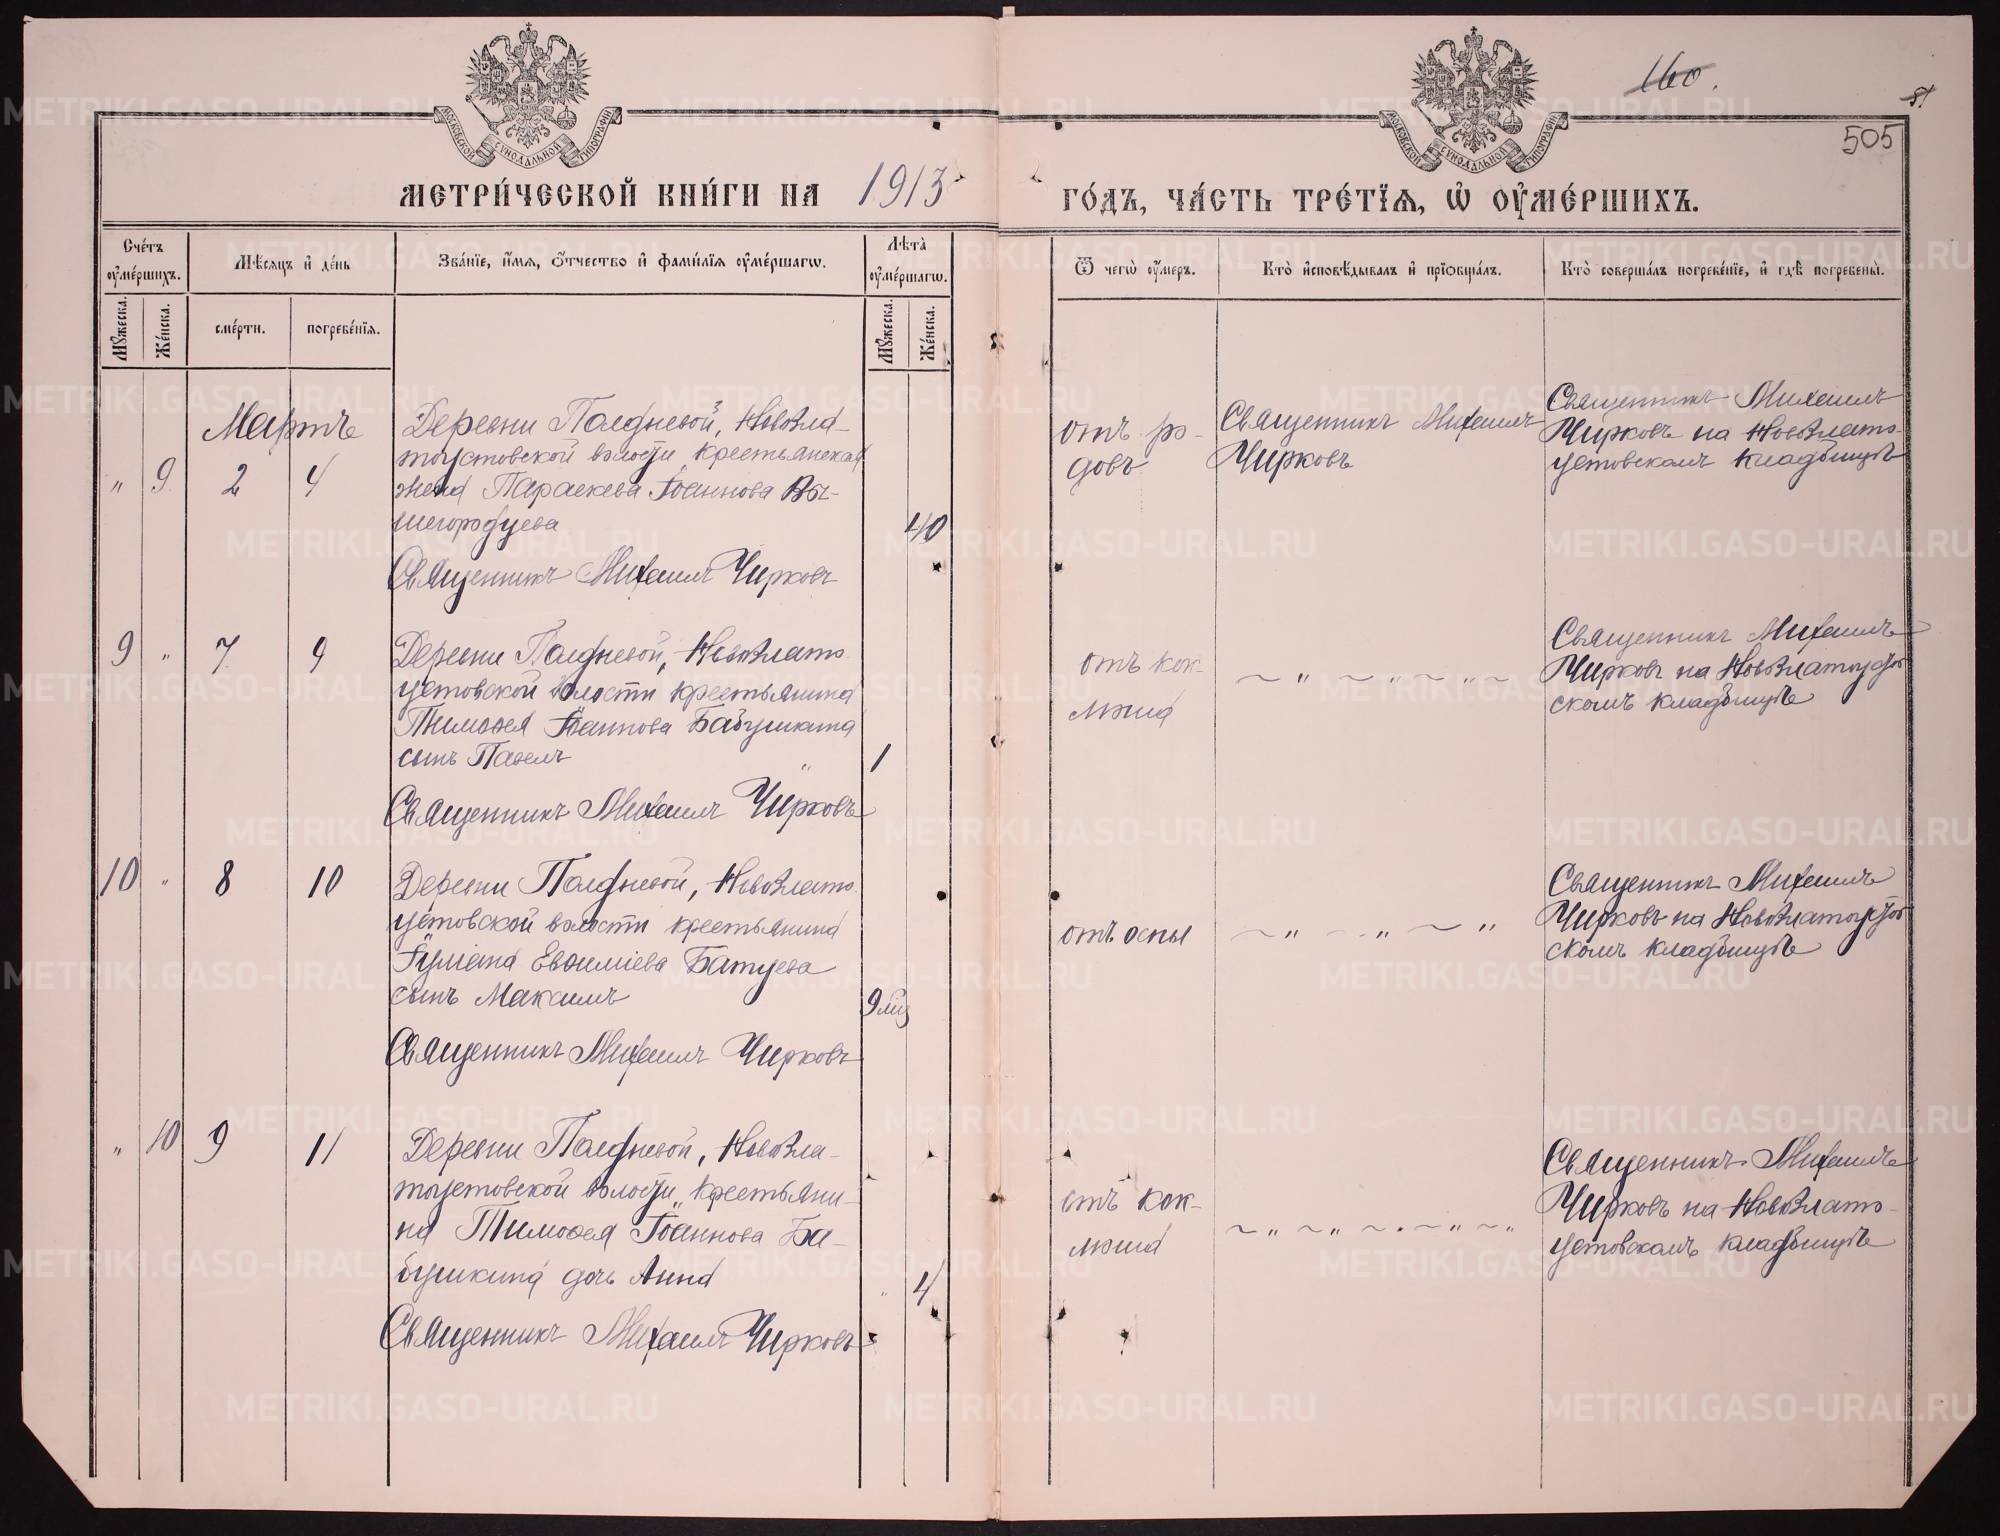 160.
51
505
МОСКОВСКОЙ СѴНОДАЛЬНОЙ ТИПОГРАФІИ
МОСКОВСКОЙ СѴНОДАЛЬНОЙ ТИПОГРАФІИ
МЕТРИ́ЧЕСКОЙ КНИ́ГИ НА 1913 ГО́ДЪ, ЧА́СТЬ ТРЕ́ТЇѦ, Ѡ҆ ОУ҆МЕ́РШИХЪ.
Сче́тъ оу҆ме́ршихъ.
Мꙋ́жеска.
Же́нска.
Мѣ́сѧцъ и҆ де́нь
сме́рти.
погребе́нїѧ.
Зва́нїе, и҆́мѧ, ѻ҆́тчество и҆ фами́лїѧ оу҆ме́ршагѡ.
Лѣ́та̀ оу҆ме́ршагѡ.
Мꙋ́жеска.
Же́нска.
Ѿ чегѡ̀ оу҆́меръ.
Кто̀ и҆сповѣ́дывалъ и҆ прїѻбща́лъ.
Кто̀ соверша́лъ погребе́нїе, и҆ гдѣ̀ погребены̀.
Мартъ
" 9 2 4
Деревни Полдневой, Новозла-
тоустовской волости крестьянская
жена Параскева Іоаннова Вы-
шегородцева
40
Священникъ Михаилъ Чирковъ
отъ ро-
довъ
Священникъ Михаилъ
Чирковъ
Священникъ Михаилъ
Чирковъ на Новозлато-
устовскомъ кладбищѣ
9 " 7 9
Деревни Полдневой, Новозлато-
устовской волости крестьянина
Тимоѳея Іоаннова Бабушкина
сынъ Павелъ
1 "
Священникъ Михаилъ Чирковъ
отъ кок-
люша
~ " ~ " ~ " ~
Священникъ Михаилъ
Чирковъ на Новозлатоустов
скомъ кладбищѣ
10 " 8 10
Деревни Полдневой, Новозлато-
устовской волости крестьянина
Іуліана Евѳиміева Батуева
сынъ Максимъ
9 мѣс
Священникъ Михаилъ Чирковъ
отъ оспы
~ " ~ " ~ "
Священникъ Михаилъ
Чирковъ на Новозлатоустов
скомъ кладбищѣ
" 10 9 11
Деревни Полдневой, Новозла-
тоустовской волости, крестьяни-
на Тимоѳея Іоаннова Ба-
бушкина дочь Анна
" 4
Священникъ Михаилъ Чирковъ
отъ кок-
люша
~ " ~ " ~ " ~ " ~ "
Священникъ Михаилъ
Чирковъ на Новозлато-
устовскомъ кладбищѣ
METRIKI.GASO-URAL.RU